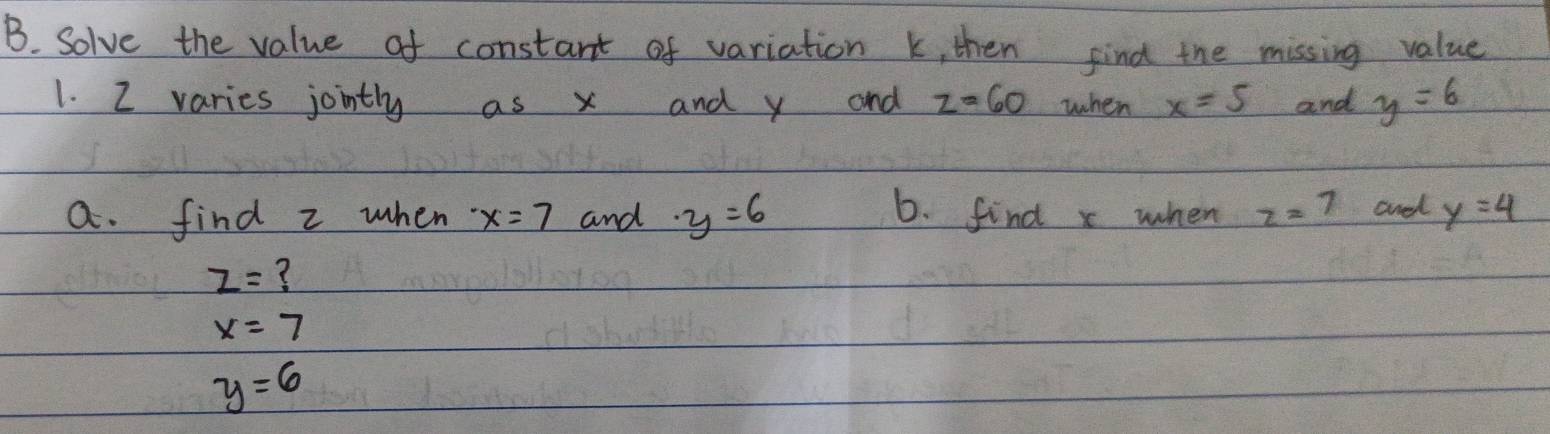 B. Solve the value of constant of variation k, then find the missing value
1. Z varies jointly as x and y and z=60 when x=5 and y=6
a. find z when x=7 and y=6 b. find x when z=7 and y=4
z=?
x=7
y=6